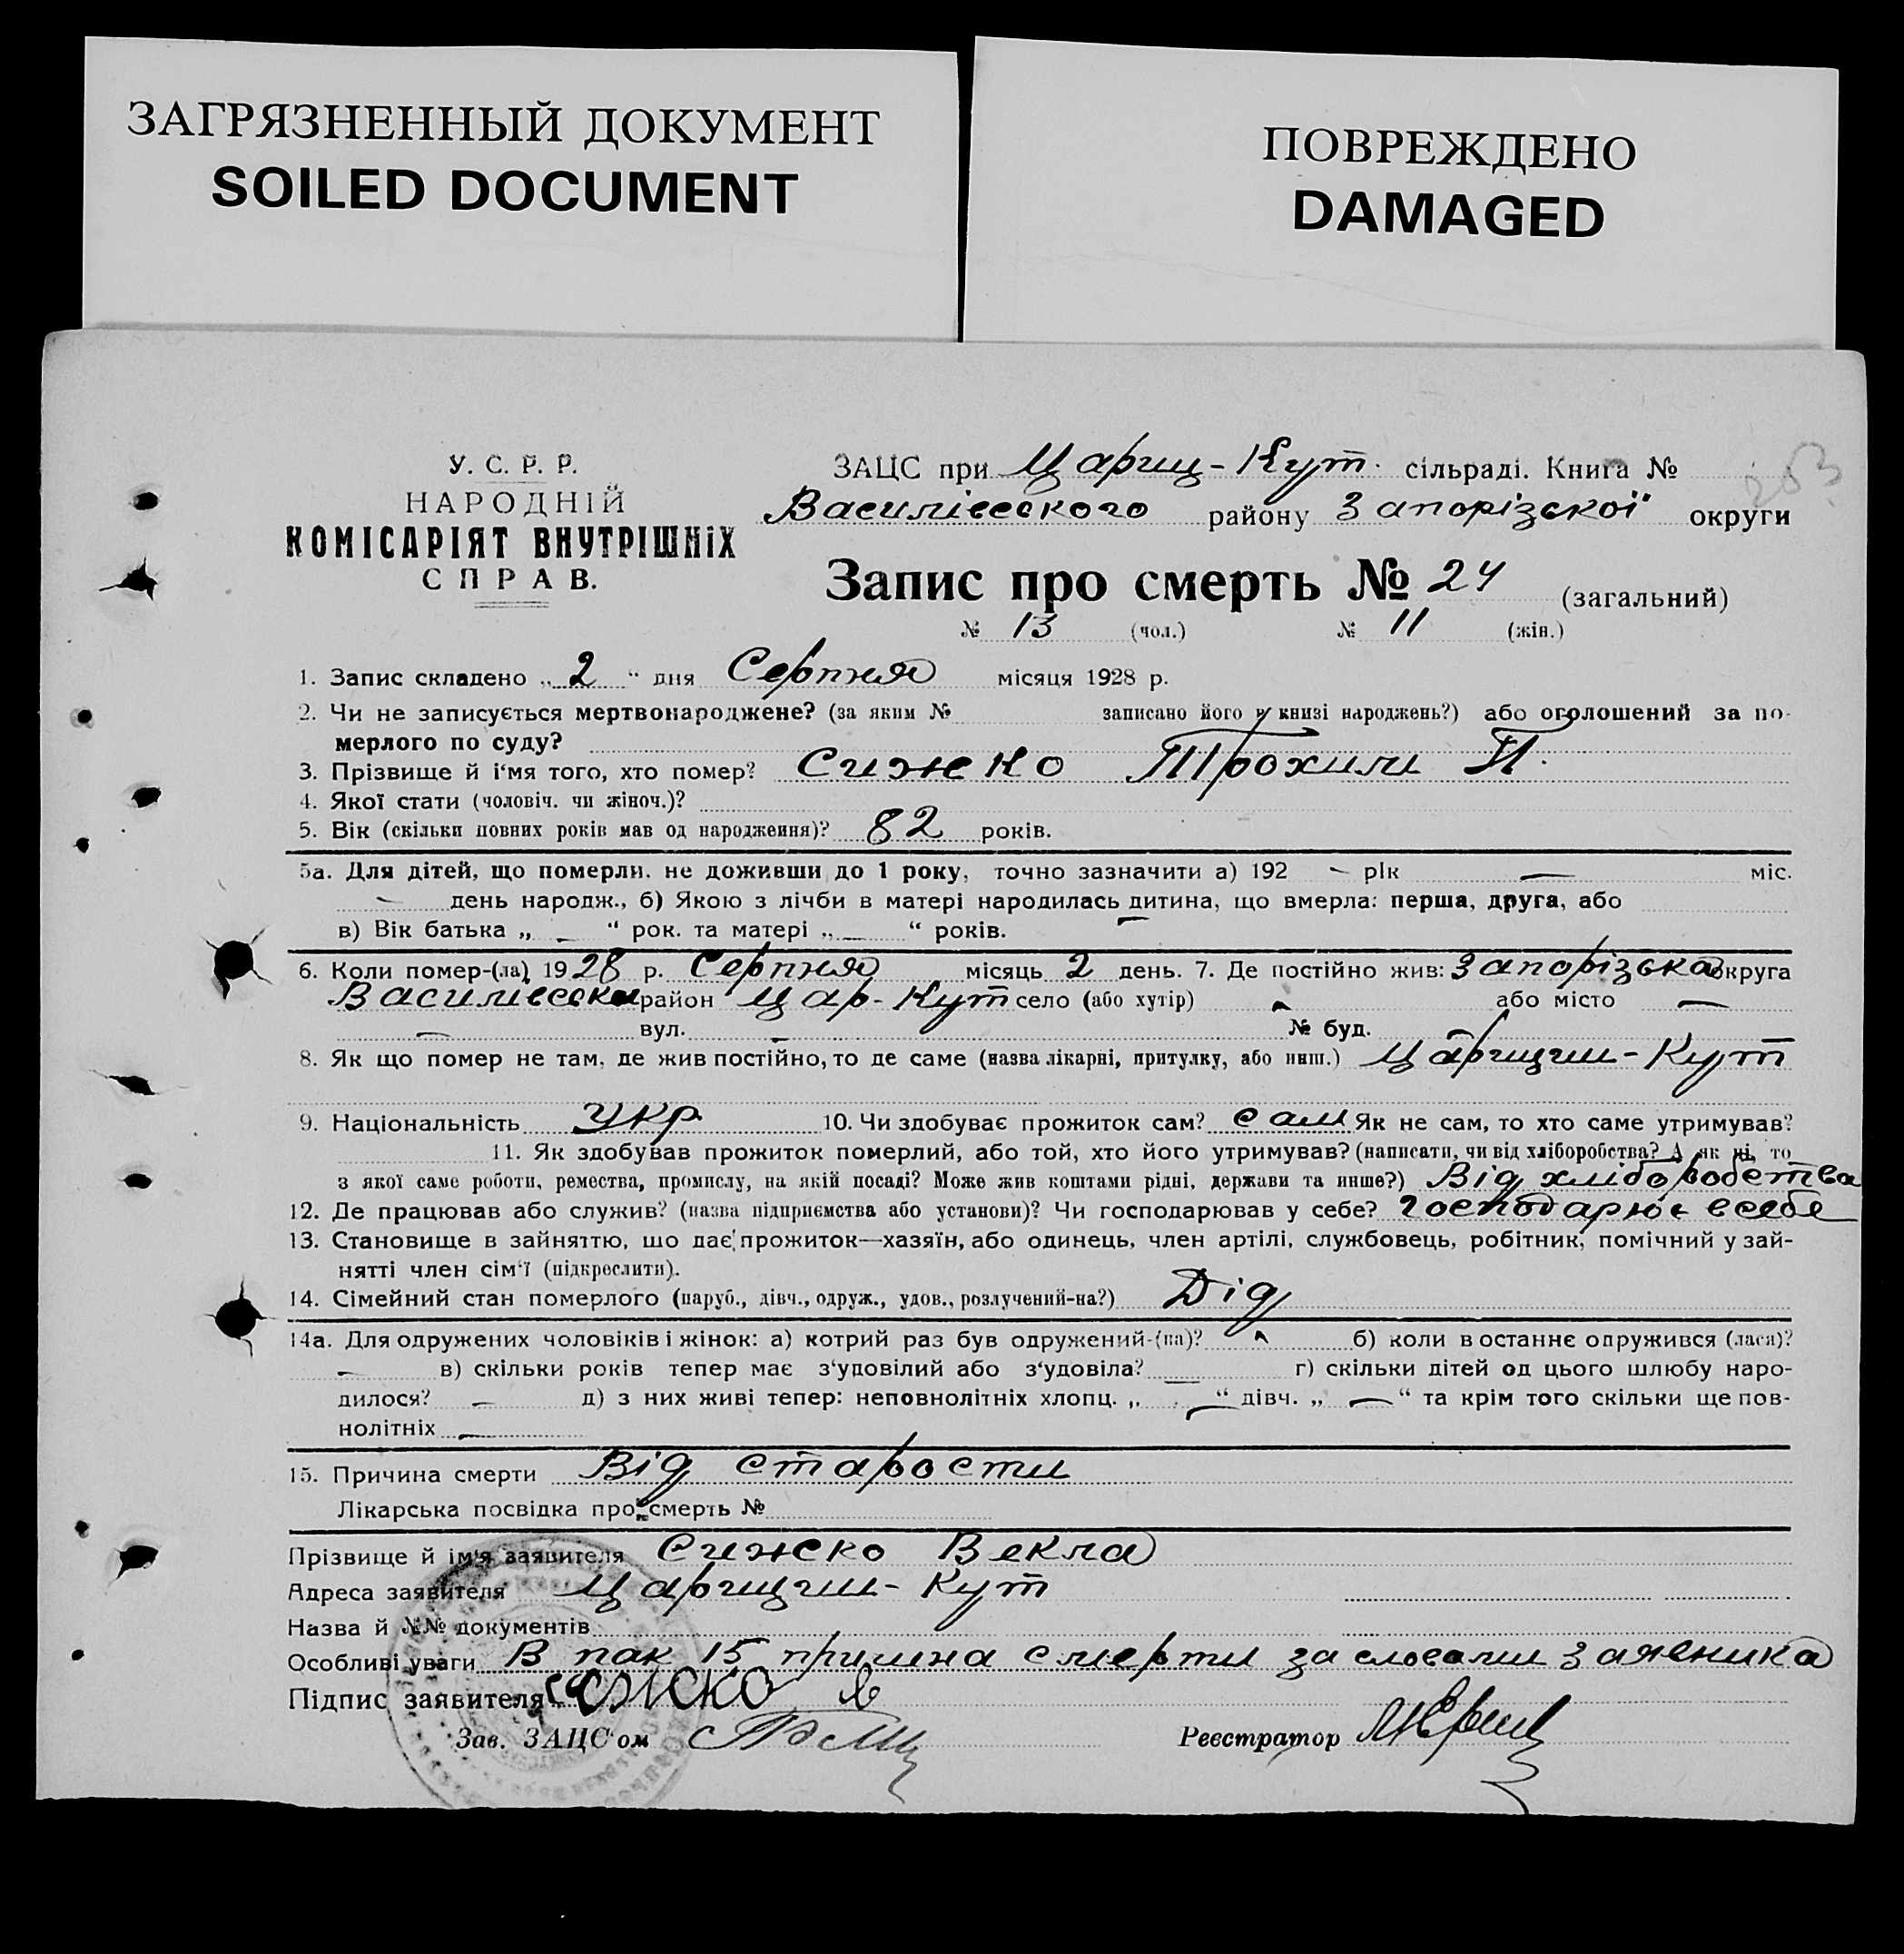 ЗАГРЯЗНЕННЫЙ ДОКУМЕНТ
SOILED DOCUMENT
ПОВРЕЖДЕНО
DAMAGED
253
У. С. Р. Р.
НАРОДНІЙ
КОМІСАРІЯТ ВНУТРІШНІХ
СПРАВ.
ЗАЦС при Цариц-Кут. сільраді. Книга №
Василівського району Запорізької округи
Запис про смерть № 24 (загальний)
№ 13 (чол.) № 11 (жін.)
1. Запис складено „ 2 “ дня Серпня місяця 1928 р.
2. Чи не записується мертвонароджене? (за яким № записано його в книзі народжень?) або оголошений за по-
мерлого по суду?
3. Прізвище й і'мя того, хто помер? Сижко Трохим П.
4. Якої стати (чоловіч. чи жіноч.)?
5. Вік (скільки повних років мав од народження)? 82 років.
5а. Для дітей, що померли. не доживши до 1 року, точно зазначити а) 192 – рік — міс.
– день народж., б) Якою з лічби в матері народилась дитина, що вмерла: перша, друга, або
в) Вік батька „ – “ рок. та матері „ — “ років.
6. Коли помер-(ла) 1928 р. Серпня місяць 2 день. 7. Де постійно жив: Запорізька округа
Василівськи район Цар-Кут село (або хутір) або місто —
— вул. – № буд. –
8. Як що помер не там, де жив постійно, то де саме (назва лікарні, притулку, або инш.) Царицин-Кут
9. Національність Укр 10. Чи здобуває прожиток сам? сам Як не сам, то хто саме утримував?
11. Як здобував прожиток померлий, або той, хто його утримував? (написати, чи від хліборобства? А як ні, то
з якої саме роботи, ремества, промислу, на якій посаді? Може жив коштами рідні, держави та инше?) Від хліборобства
12. Де працював або служив? (назва підприємства або установи)? Чи господарював у себе? Господарює всебе
13. Становище в зайняттю, що дає прожиток—хазяїн, або одинець, член артілі, службовець, робітник, помічний у зай-
нятті член сім'ї (підкреслити).
14. Сімейний стан померлого (паруб., дівч., одруж., удов., розлучений-на?) Дід
14а. Для одружених чоловіків і жінок: а) котрий раз був одружений-(на)? б) коли в останнє одружився (лася)?
– в) скільки років тепер має з'удовілий або з'удовіла? — г) скільки дітей од цього шлюбу наро-
дилося? – д) з них живі тепер: неповнолітніх хлопц. „ — “ дівч. „ — “ та крім того скільки ще пов-
нолітніх —
15. Причина смерти Від старости
Лікарська посвідка про смерть №
Прізвище й ім'я заявителя Сижско Векла
Адреса заявителя Царицин-Кут
Назва й №№ документів
Особливі уваги В пак 15 причина смерти за словами заявника
Підпис заявителя
Зав. ЗАЦС'ом
Реєстратор